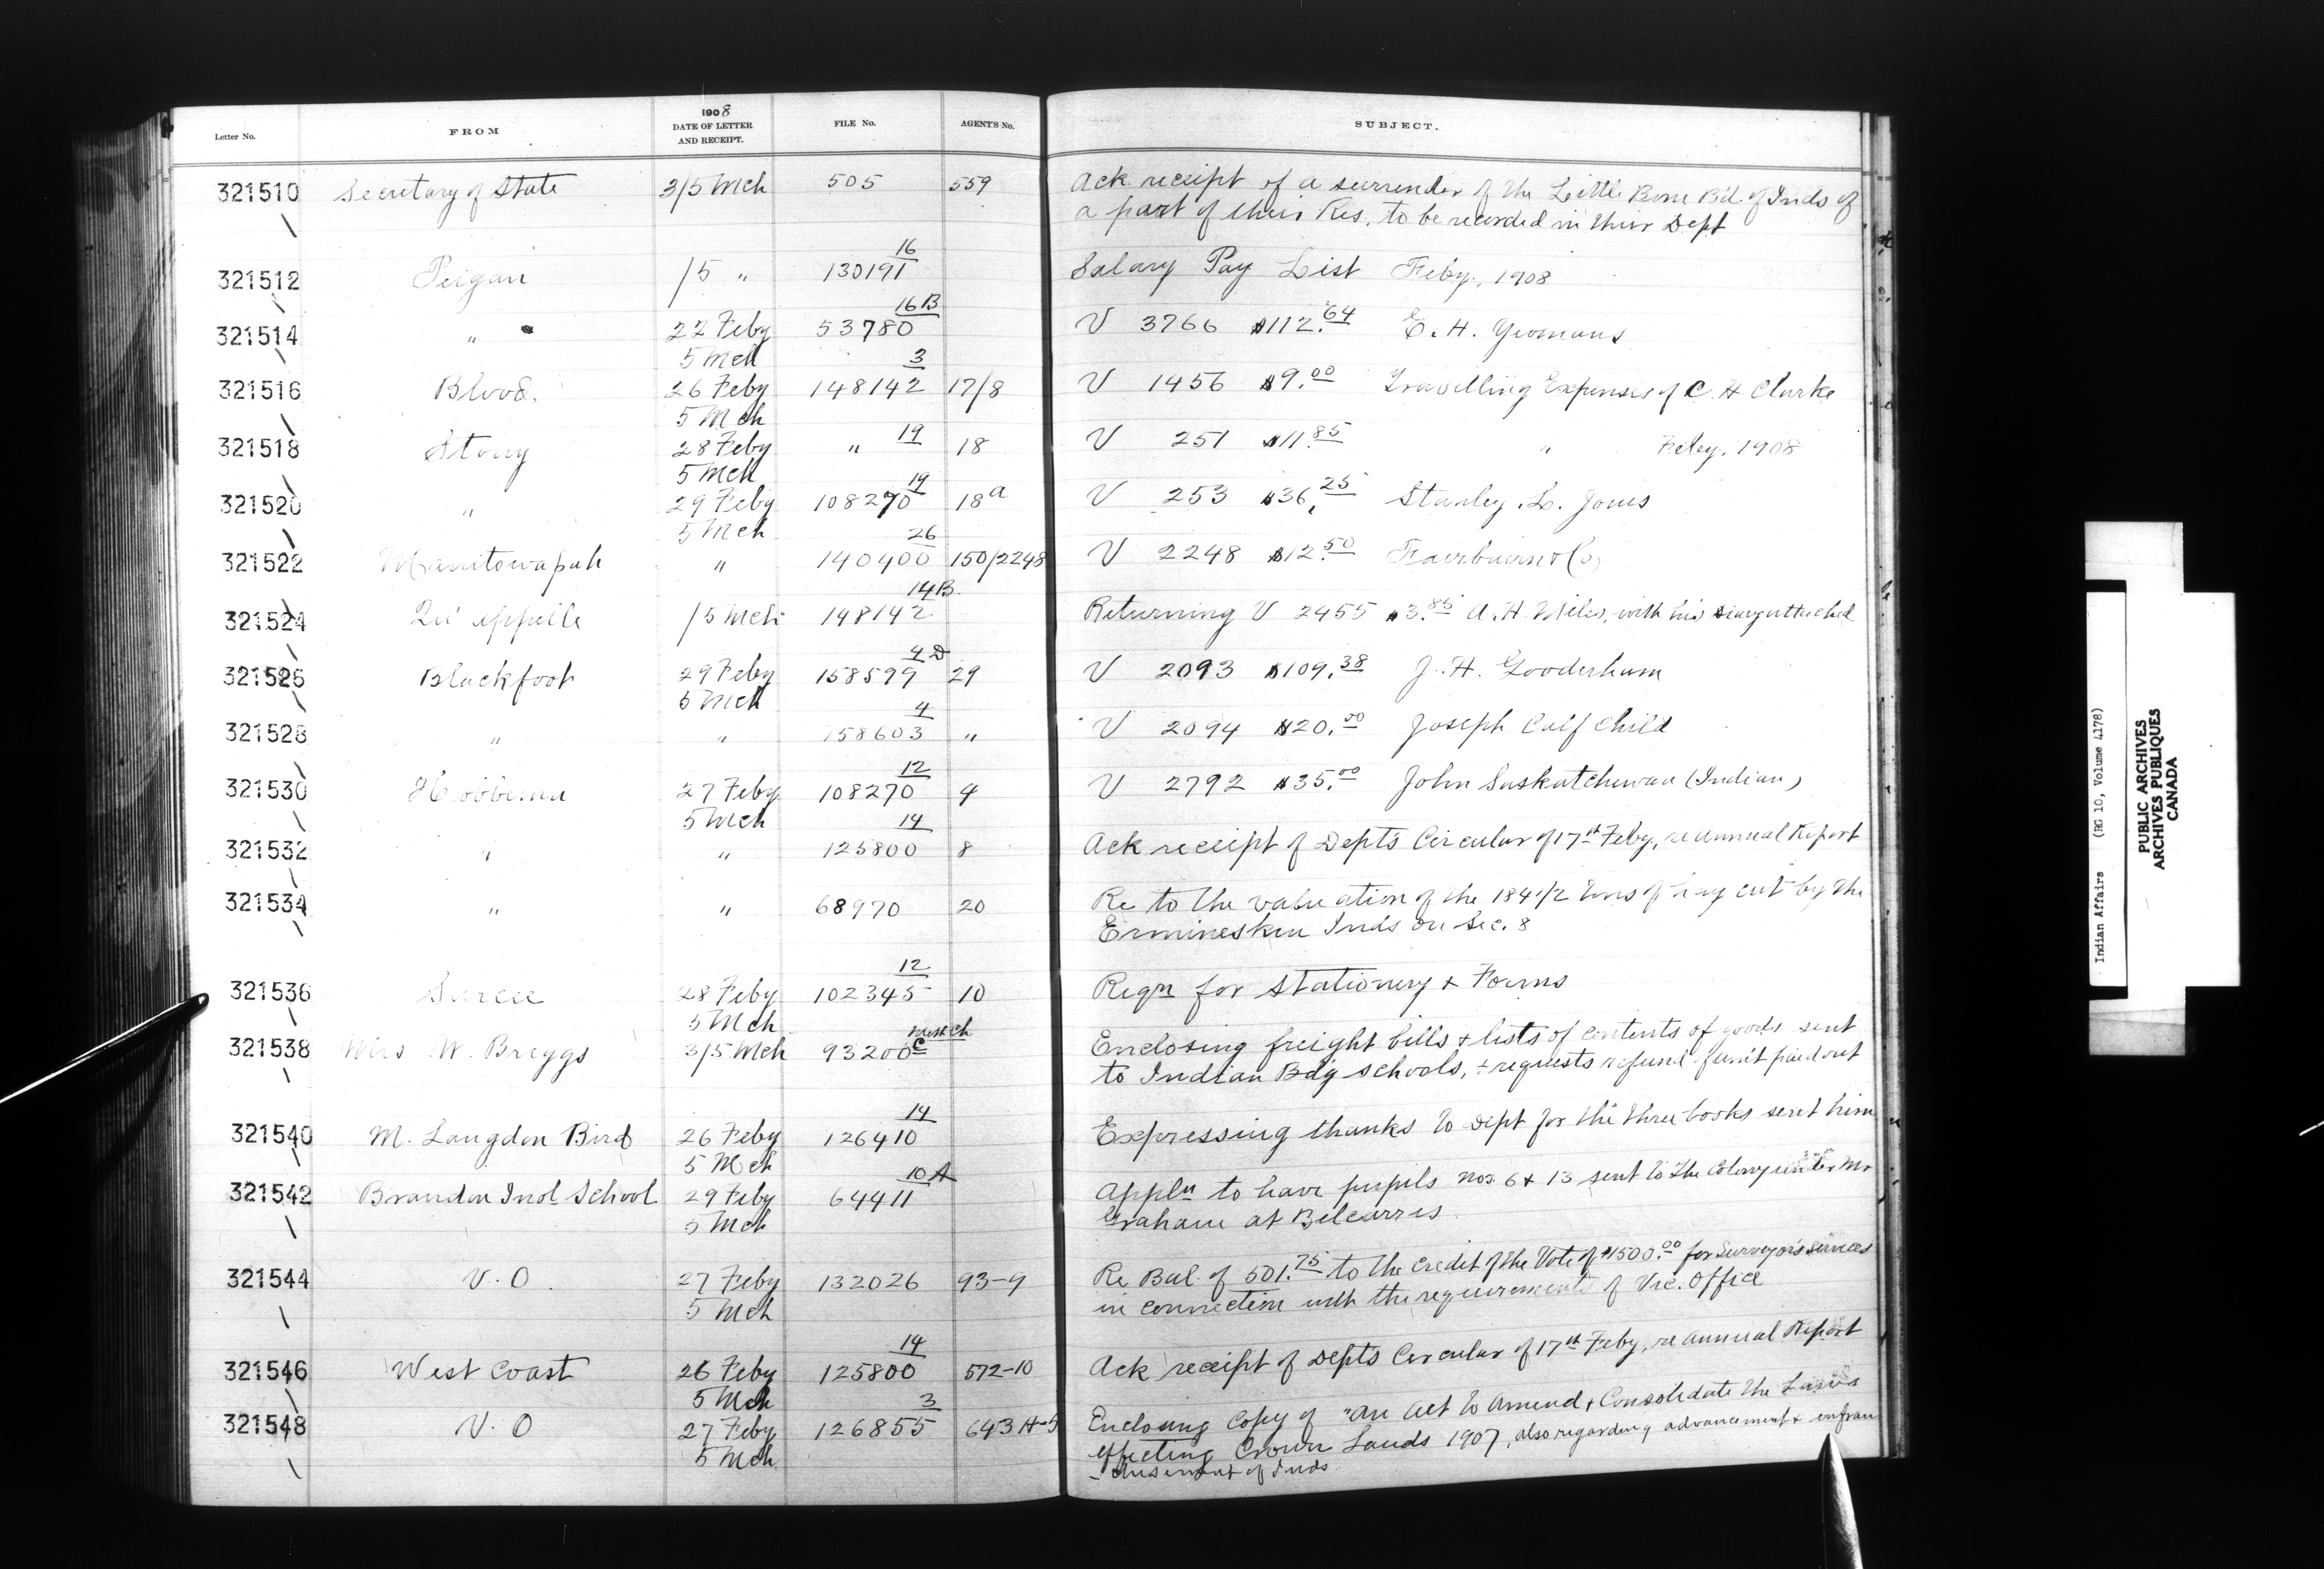 1908
Letter No. FROM DATE OF LETTER AND RECEIPT. FILE No. AGENTS No. SUBJECT.
321510 Secretary of State 3/5 Mch 505 559 Ack receipt of a surrender of the Little Bone Bd. of Inds of
a part of their Res. to be recorded in their Dept
16
321512 Peigan /5 " 130191 Salary Pay List Feby., 1908
16B
321514 " 22 Feby 53780 V 3766 $112.64 E. H. Yeomans
5 Mch 3
321516 Blood. 26 Feby 148142 17/8 V 1456 $9.00 Travelling Expenses of C. H Clarke
5 Mch
19
321518 Stony 28 Feby " 18 V 251 $11.85 " Feby. 1908
5 Mch 19
321520 " 29 Feby 108270 18a V 253 $36.25 Stanley. L. Jones
5 Mch 26
321522 Manitowapah " 140400 150/2248 V 2248 $12.50 Fairbairn & Co
14B.
321524 Qu'appelle /5 Mch 148142 Returning V 2455 $3.85 A. H. Miles, with his diary attached
4D
321526 Blackfoot 29 Feby 158599 29 V 2093 $109.38 J. H. Gooderham
5 Mch 4
321528 " " 158603 " V 2094 $20.00 Joseph Calf Child
12
321530 Hobbema 27 Feby 108270 4 V 2792 $35.00 John Saskatchewan (Indian)
5 Mch 14
321532 " " 125800 8 Ack receipt of Depts Circular of 17th Feby, re annual Report
321534 " " 68970 20 Re to the valuation of the 184 1/2 tons of hay cut by the
Ermineskin Inds on Sec. 8
12
321536 Sarcee 28 Feby 102345 10 Reqn for Stationery & Forms
5 Mch
321538 Mrs W. Briggs 3/5 Mch 93200 C Enclosing freight bills & lists of contents of goods sent
to Indian Bdg schools, & requests refund paid out
14
321540 M. Langdon Bird 26 Feby 126410 Expressing thanks to Dept for the three books sent him
5 Mch 10A
321542 Brandon Indl School 29 Feby 64411 Appln to have pupils Nos. 6 & 13 sent to the Colony under Mr
5 Mch Graham at Belcarres
321544 V. O. 27 Feby 132026 93-9 Re Bal. of 501.75 to the credit of the Vote of $1500.00 for Surveyor's services
5 Mch in connection with the requirements of Vic. Office
14
321546 West Coast 26 Feby 125800 572-10 Ack receipt of Depts Circular of 17th Feby, re annual Report
5 Mch 3
321548 V. O 27 Feby 126855 643 H-5 Enclosing Copy of "An Act to Amend & Consolidate the Laws
5 Mch effecting Crown Lands 1907, also regarding advancement & enfran
-chisement of Inds
Indian Affairs (RG 10, Volume 4178)
PUBLIC ARCHIVES
ARCHIVES PUBLIQUES
CANADA